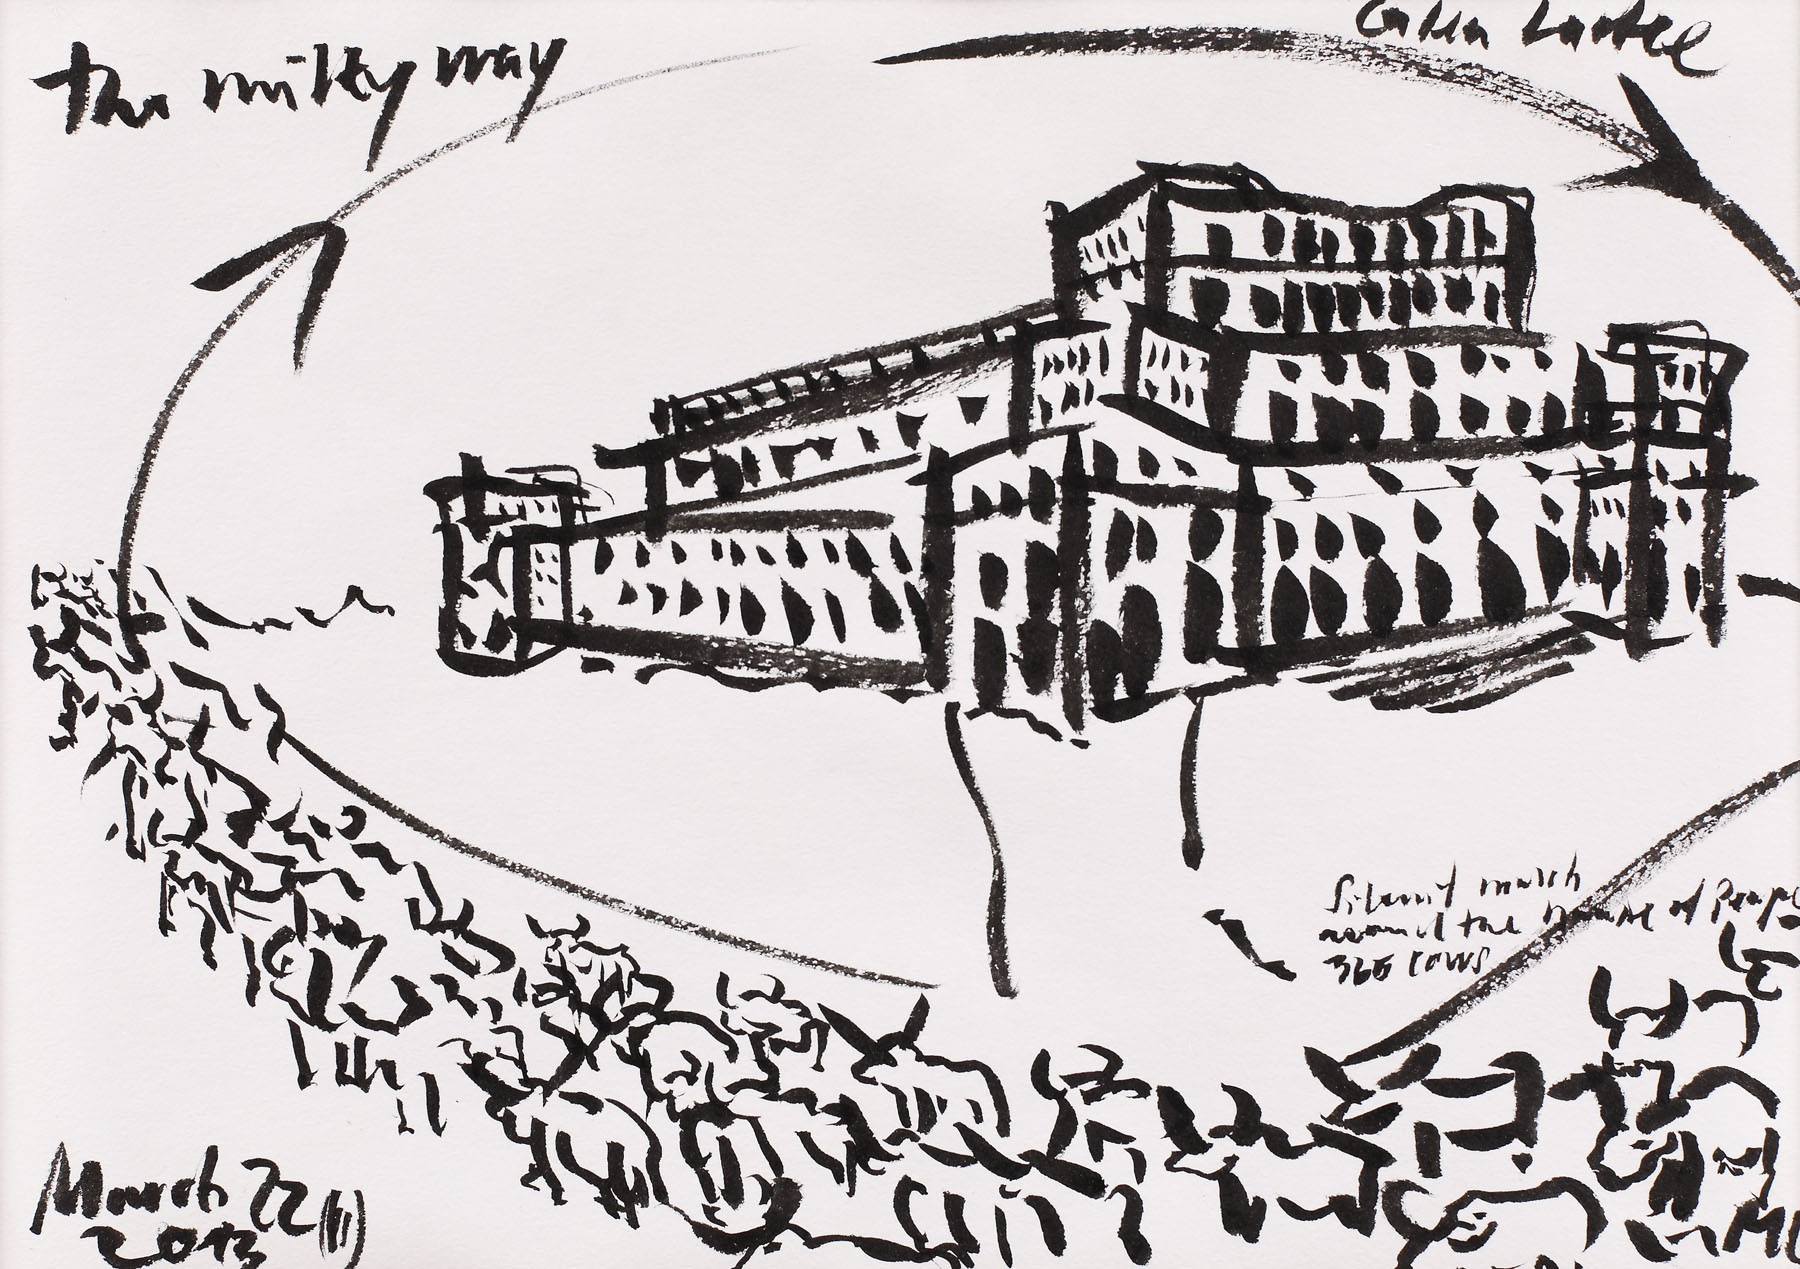 the milky way
Calea Lactee
Silent march
around the house of People
365 cows
March 22 (III)
2013